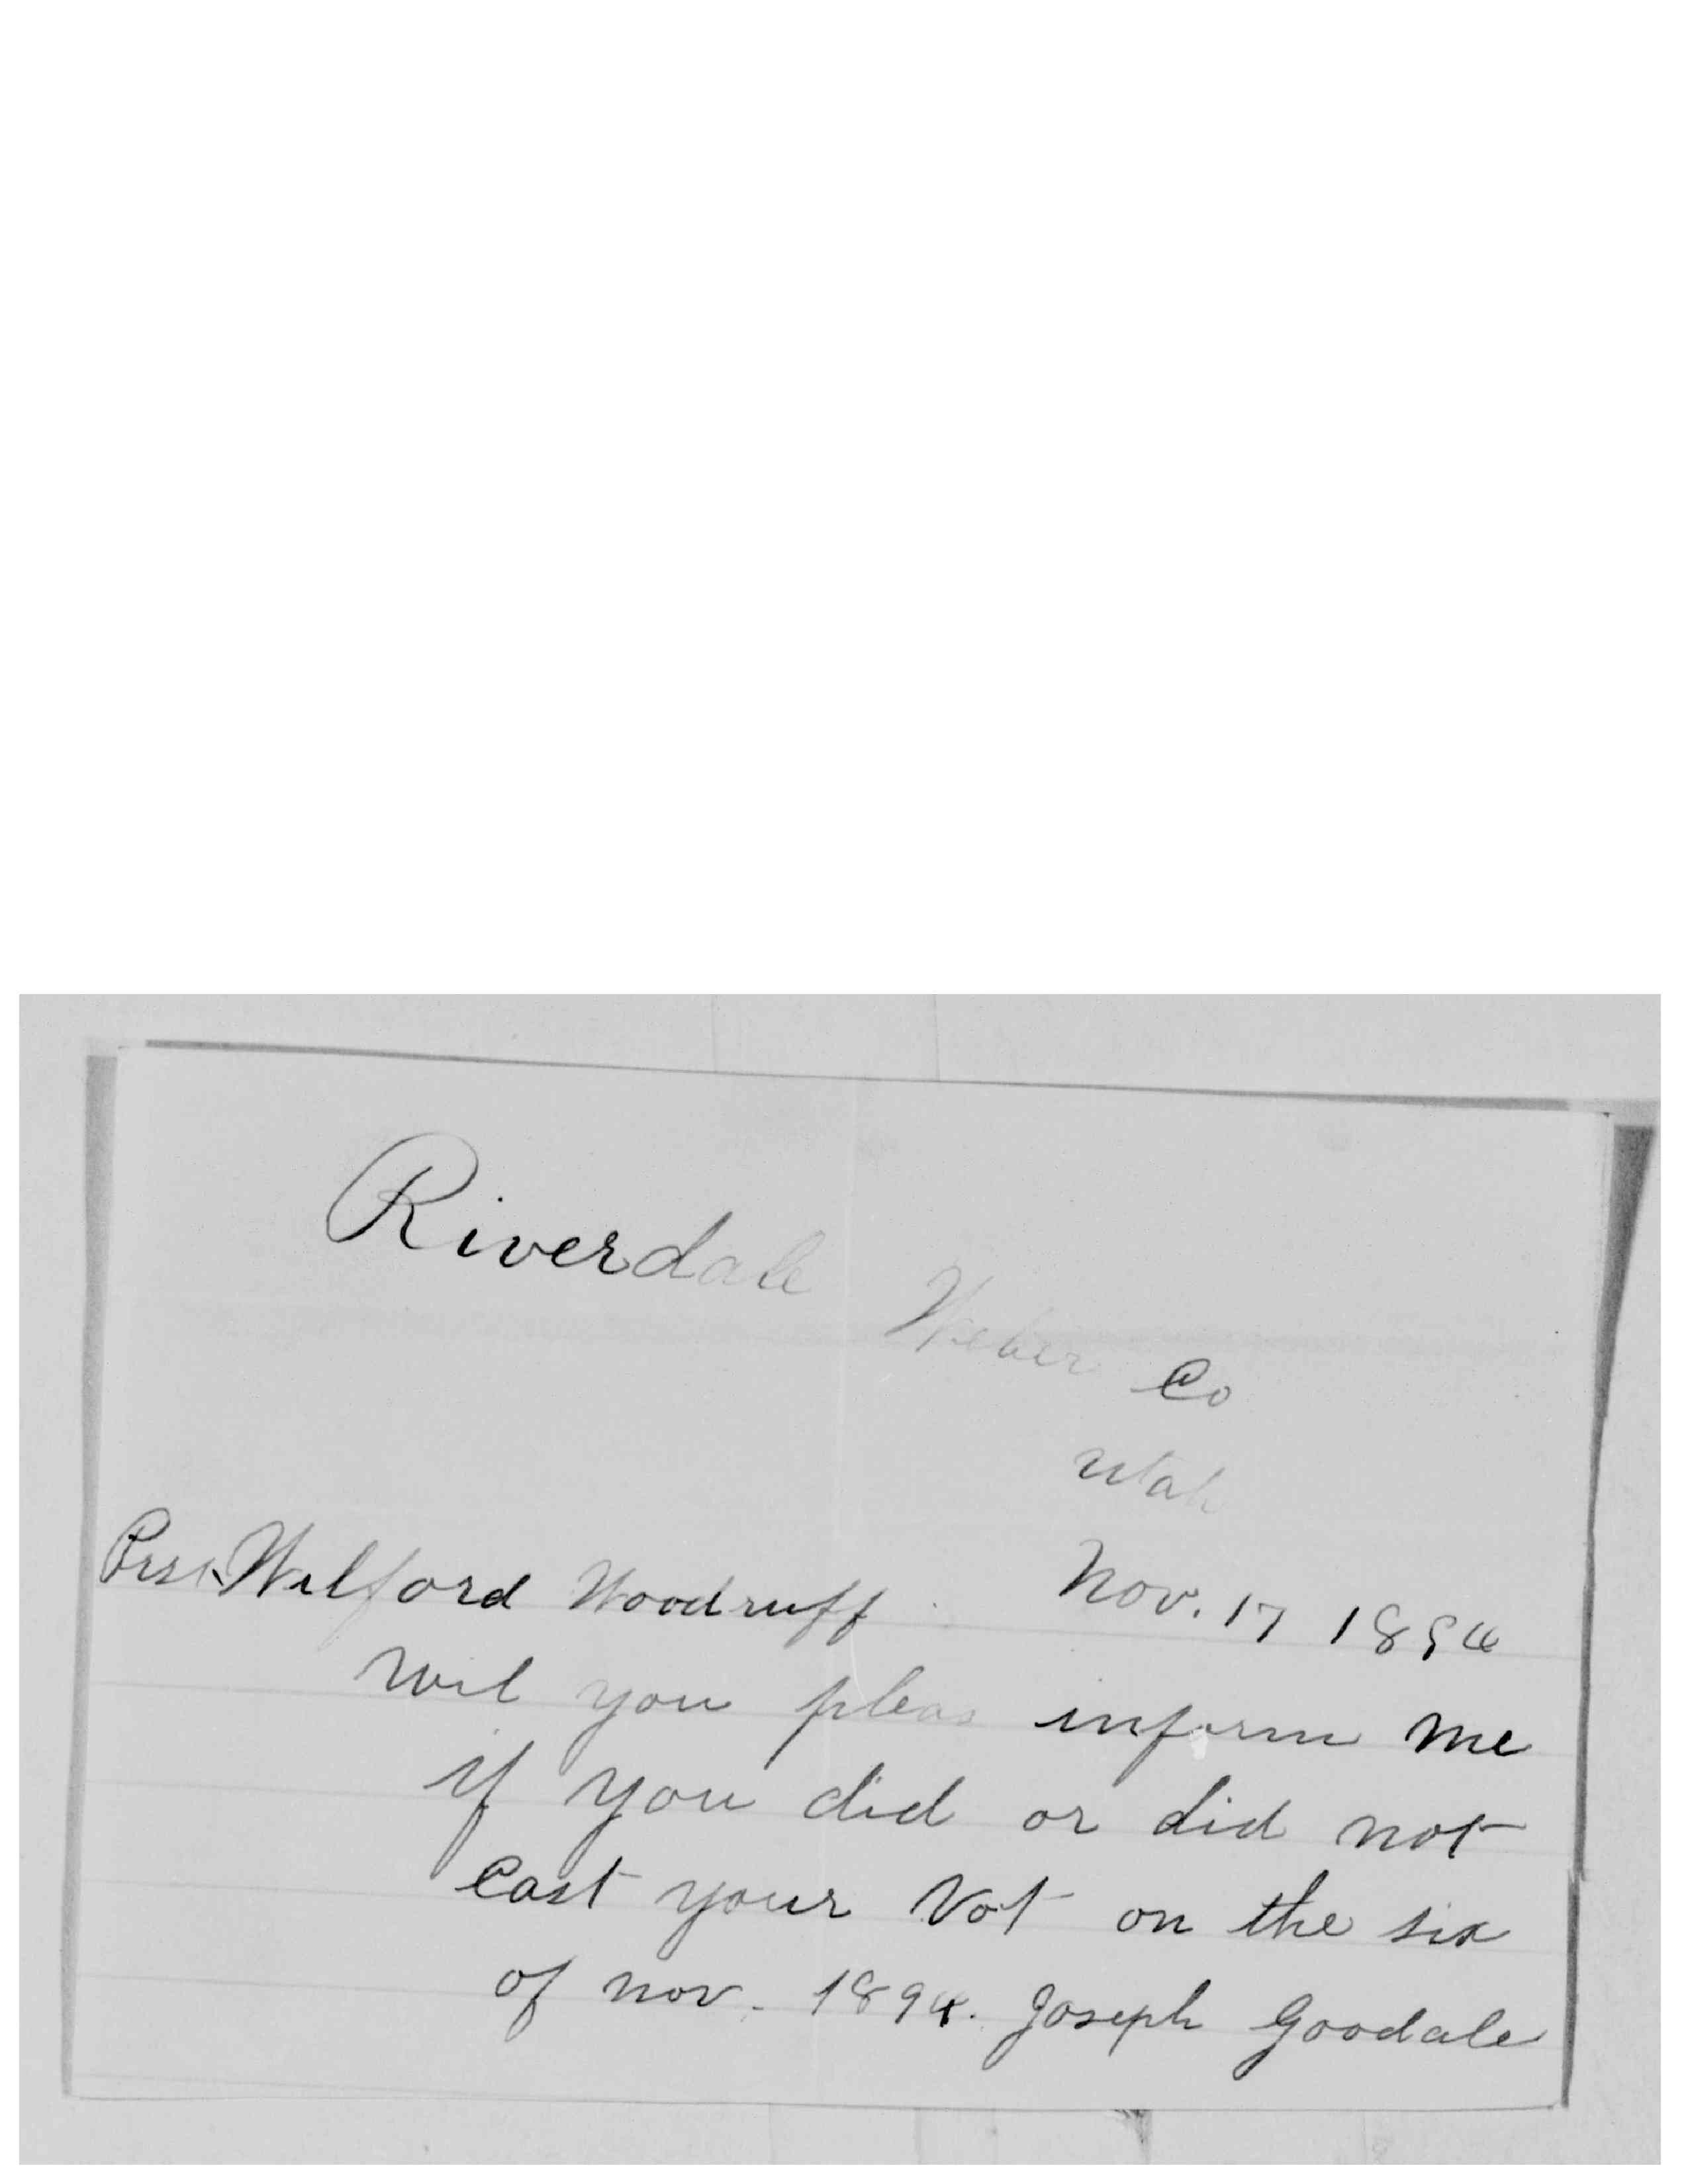 Riverdale Weber Co
Utah
Nov. 17 1894
Wilford Woodruff
Wil you pleas inform me
if you did or did not
Cast your Vot on the six
of nov. 1894. Joseph Goodale